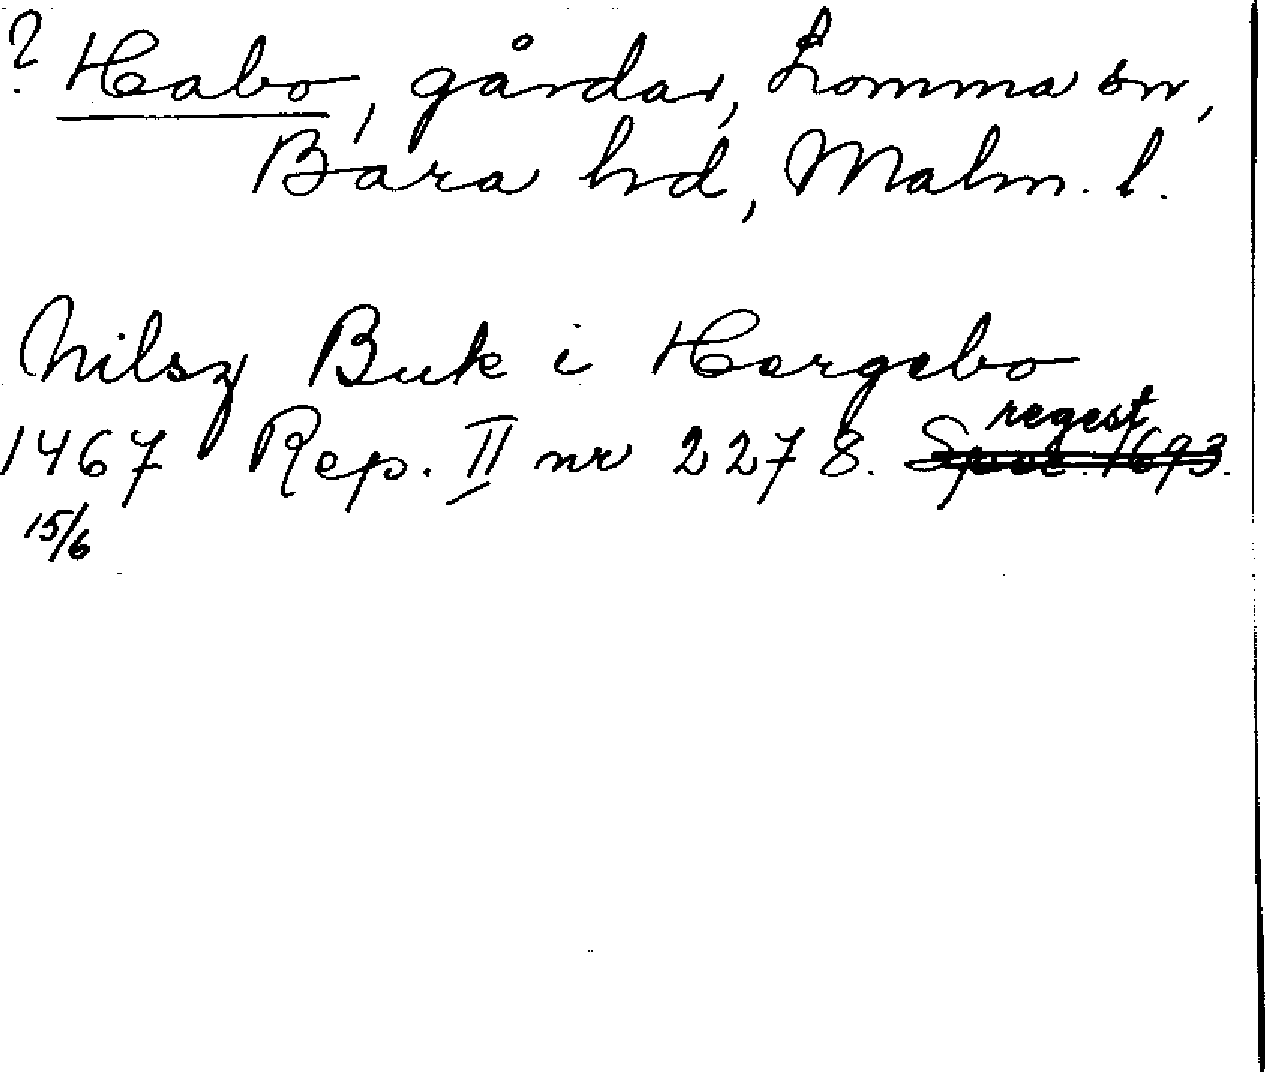 ? Habo, gårdar, Lomma sn,
Bara hd, Malm. l.
Nilsz Buk i Hergebo
regest
1467 Rep. II nr 2278. Spec. 1693.
15/6